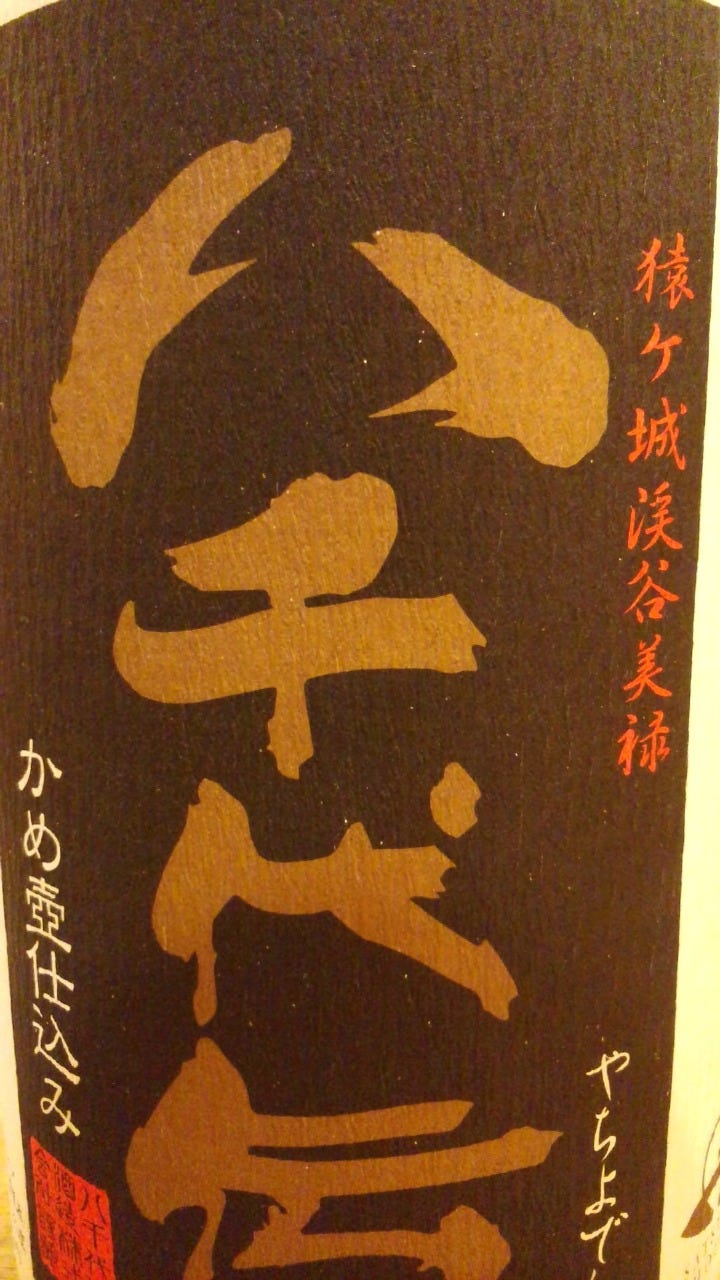 猿ケ城渓谷美禄
八千代伝
やちよで
かめ壺仕込み
八千代